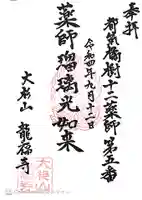 奉拝
都筑橘樹十二薬師第五番
令和四年九月十二日
薬師瑠璃光如来
龍福寺